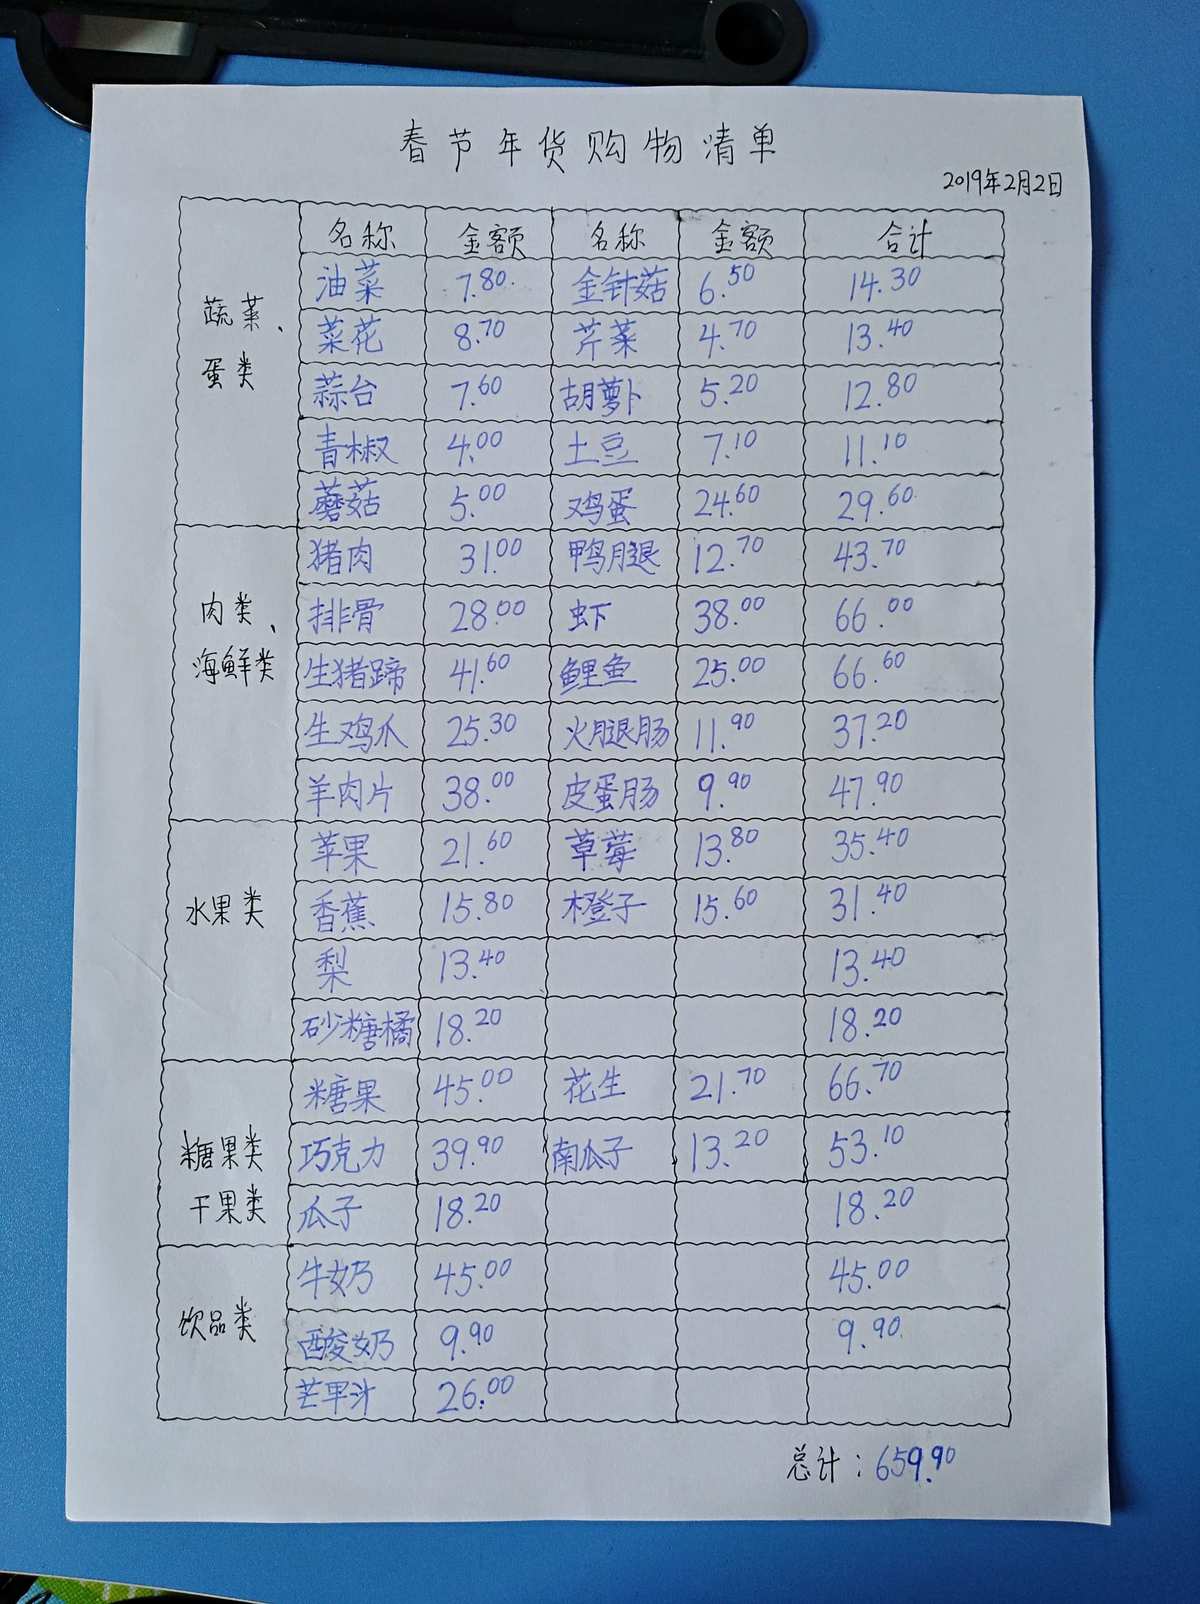 春节年货购物清单
2019年2月2日
名称 金额 名称 金额 合计
蔬菜、
蛋类
油菜 7.80. 金针菇 6.50 14.30
菜花 8.70 芹菜 4.70 13.40
蒜台 7.60 胡萝卜 5.20 12.80
青椒 4.00 土豆 7.10 11.10
蘑菇 5.00 鸡蛋 24.60 29.60
肉类、
海鲜类
猪肉 31.00 鸭腿 12.70 43.70
排骨 28.00 虾 38.00 66.00
生猪蹄 41.60 鲤鱼 25.00 66.60
生鸡爪 25.30 火腿肠 11.90 37.20
羊肉片 38.00 皮蛋肠 9.90 47.90
水果类
苹果 21.60 草莓 13.80 35.40
香蕉 15.80 橙子 15.60 31.40
梨 13.40 13.40
砂糖橘 18.20 18.20
糖果类
干果类
糖果 45.00 花生 21.70 66.70
巧克力 39.90 南瓜子 13.20 53.10
瓜子 18.20 18.20
饮品类
牛奶 45.00 45.00
酸奶 9.90 9.90
芒果汁 26.00
总计：659.90